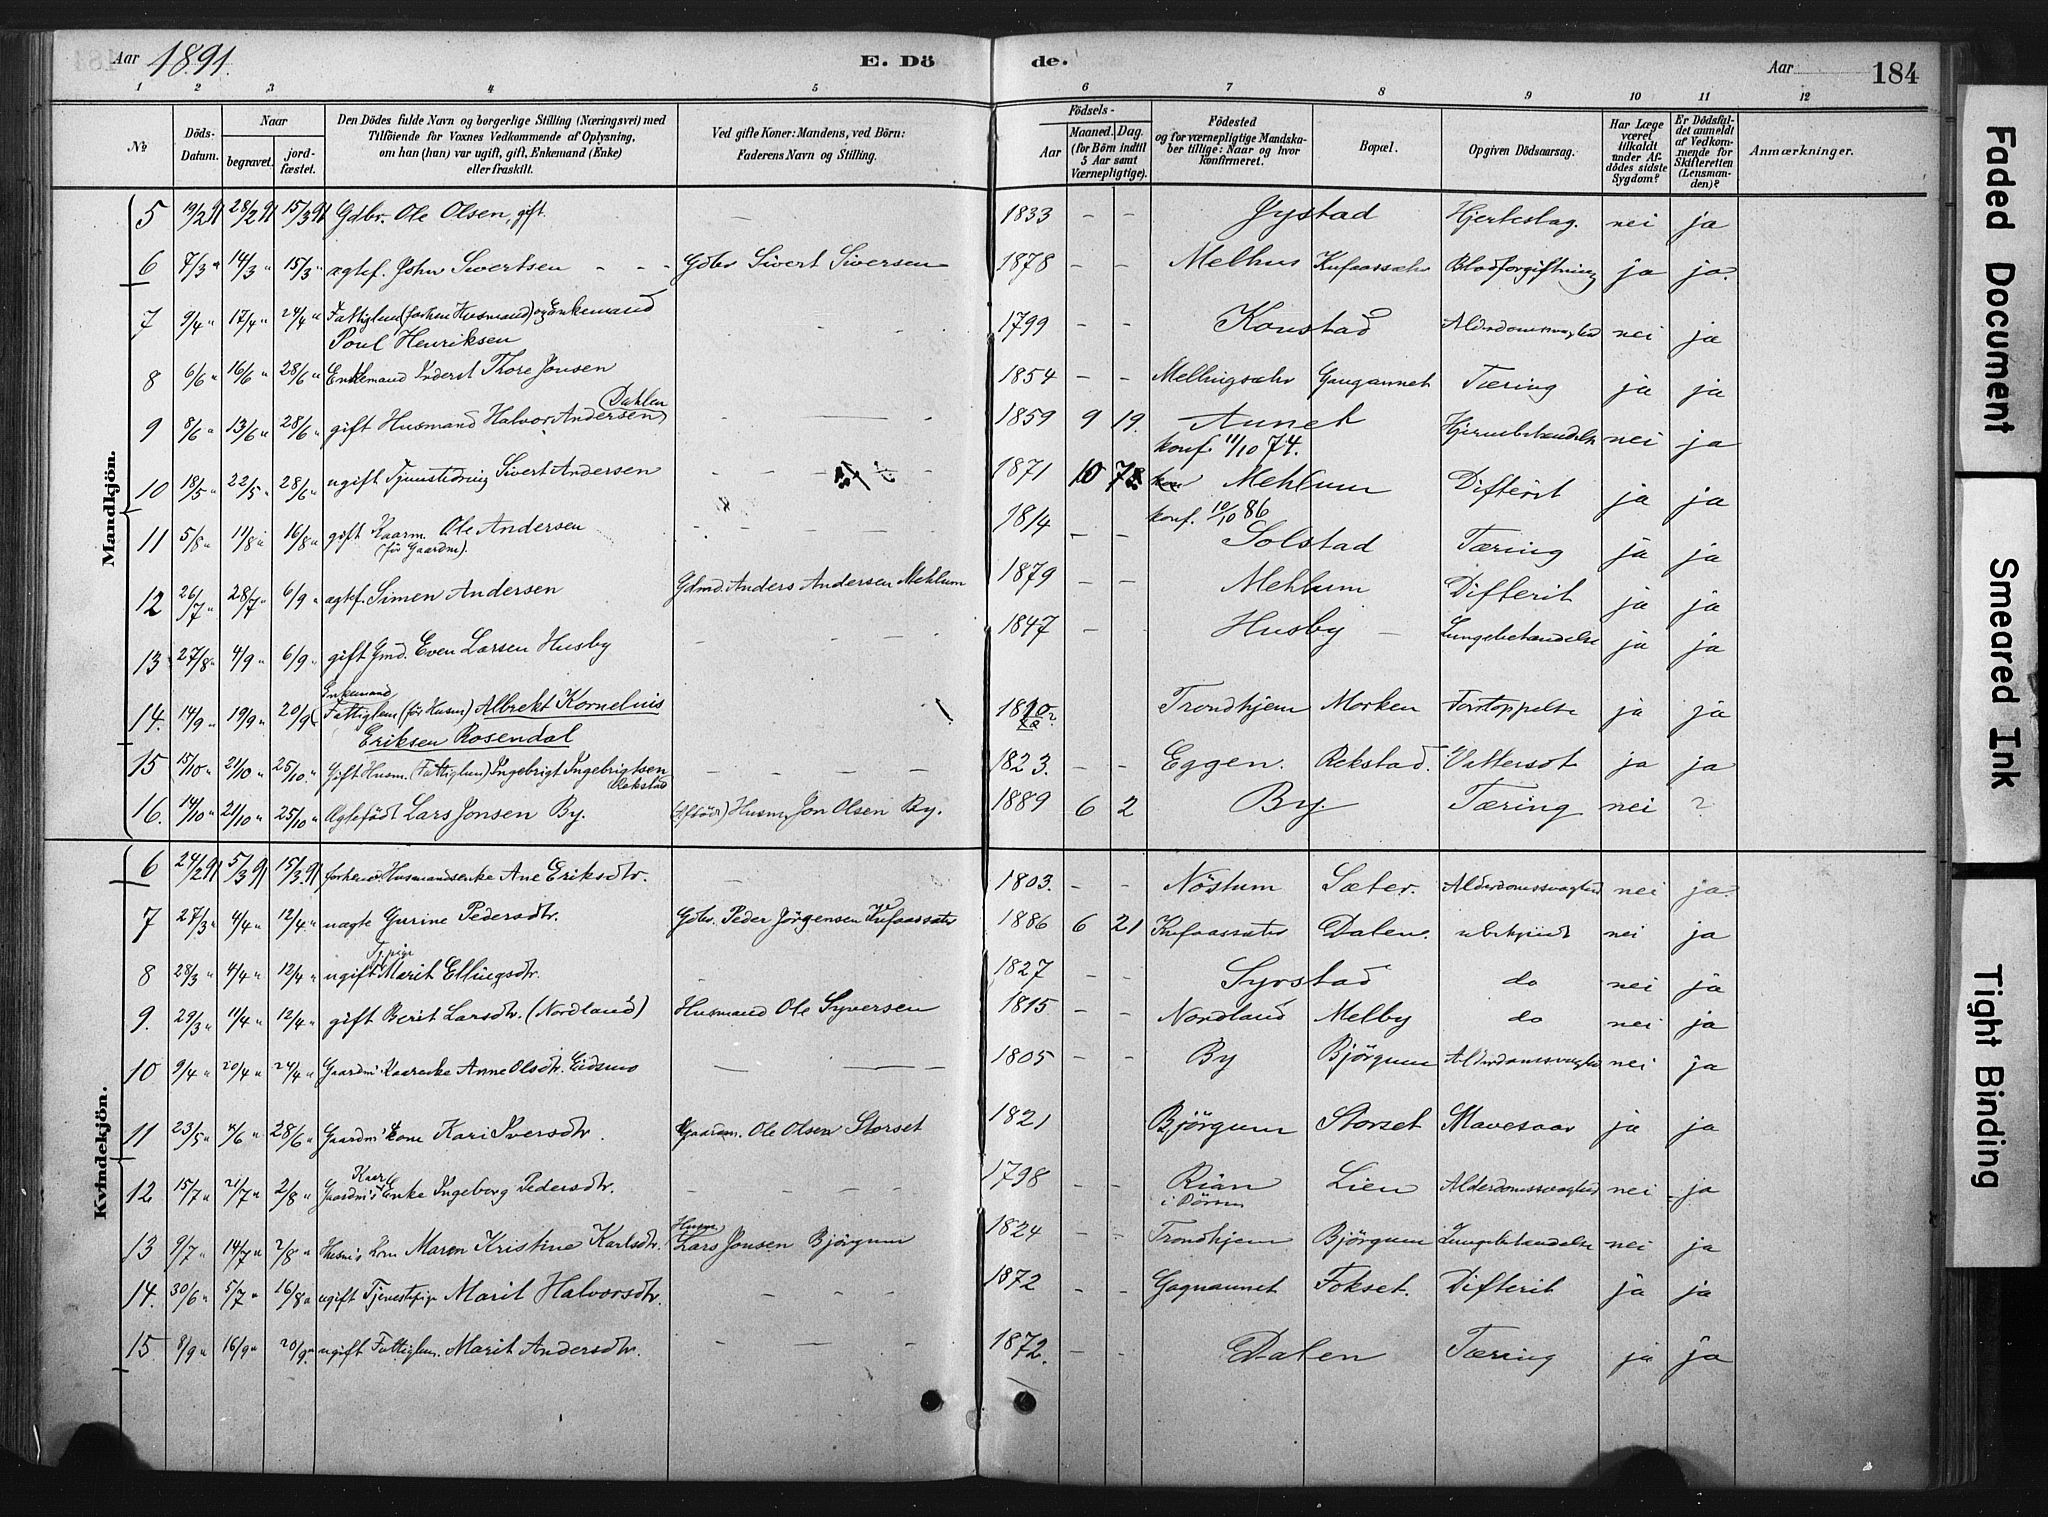 Aar 1891. E. Dö de. Aar 184
1 2 3 4 5 6 7 8 9 10 11 12
№
Döds-Datum.
Naar
begravet. jordfæstet.
Den Dödes fulde Navn og borgerlige Stilling (Næringsvei) med
Tilföiende for Voxnes Vedkommende af Oplysning,
om han (hun) var ugift, gift, Enkemand (Enke)
eller fraskilt.
Ved gifte Koner: Mandens, ved Börn:
Faderens Navn og Stilling.
Födsels-
Aar
Maaned. Dag.
(for Börn indtil
5 Aar samt
Værnepligtige).
Födested
og for værnepligtige Mandskaber tillige: Naar og hvor
Konfirmeret.
Bopæl.
Opgiven Dödsaarsag.
Har Læge
været
tilkaldt
under Afdödes sidste
Sygdom?
Er Dödsfaldet anmeldt
af Vedkommende for
Skifteretten
(Lensmanden)?
Anmærkninger.
Mandkjön.
5 19/2 91 28/2 91 15/3 91 Gdbr. Ole Olsen, gift. — 1833 - - Jystad Hjerteslag. nei ja
6 7/3 " 14/3 " 15/3 " ægtef. John Sivertsen - - - Gdbr Sivert Siversen 1878 - - Melhus Kufaassæter Blodforgiftning ja ja.
7 9/4 " 17/4 " 24/4 " Fattiglem (forhen Husmand) og Enkemand - - - 1799 - - Konstad Alderdomssvaghed nei ja
Poul Henriksen
8 6/6 " 16/6 " 28/6 " Enkemand Inderst Thore Jonsen 1854 - - Mellingsæter Gaugannet Tæring ja ja
Dahlen
9 8/6 " 13/6 " 28/6 " gift Husmand Halvor Andersen - 1859 9 19. Aunet Hjernebetændelse nei ja
konf. 11/10 74.
10 18/5 " 22/5 " 28/6 " ugift Tjenestedreng Sivert Andersen - - 1871 10 Mehlum Difterit ja ja
konf. 10/10 86
11 5/8 " 11/8 " 16/8 " gift Kaarm. Ole Andersen - - - 1814 - - Solstad Tæring ja ja
(för Gaardm).
12 26/7 " 28/7 " 6/9 " ægtef. Simen Andersen Gdmd. Anders Andersen Mehlum 1879 - - Mehlum Difterit ja ja
13 27/8 " 4/9 " 6/9 " gift Gmd. Even Larsen Husby - - 1847 - - Husby - Lungebetændelse ja ja
Enkemand
14. 14/9 " 19/9 " 20/9 Fattiglem (för Husm) Albrekt Kornelius - - - Trondhjem Morken Forstoppelse ja ja
Eriksen Rosendal
15 15/10 " 21/10 " 25/10 " Gift Husm. (Fattiglem) Ingebrigt Ingebrigtsen - - - - 1823. - - Eggen. Rekstad. Vattersot ja ja
Rekstad
16. 14/10 " 21/10 " 25/10 " Ægtefödt Lars Jonsen By. Husm. Jon Olsen By. 1889 6 2 By. Tæring nei ?
Kvindekjön.
6 24/2 91 5/3 91 15/3 91 forhenv Husmandsenke Ane Eriksdtr. — 1803. - - Nöstum Sæter. Alderdomssvaghed nei ja.
7 27/3 " 4/4 " 12/4 " uægte Gurine Pedersdtr. Gdbr. Peder Jörgensen Kufaassæter 1886 6 21 Kufaassæter Dalen. ubekjendt nei ja
Tj.pige
8 28/3 " 4/4 " 12/4 " ugift Marit Ellingsdtr. - 1827 - - Syrstad do nei ja
9. 29/3 " 11/4 " 12/4 " gift Berit Larsdtr. (Nordland) Husmand Ole Syversen 1815 - - Nordland Melby do nei ja
10 9/4 " 20/4 " 24/4 " Gaardm's Kaarenke Anne Olsdtr. Eidsmo - - - 1805 - - By Björgum Alderdomssvaghed nei ja
11 23/5 " 4/6 " 28/6 " Gaardm's kone Kari Iversdtr. Gaardm. Ole Olsen Storset 1821 Björgum Storset Mavesaar ja ja
Kaar
12 15/7 " 21/7 " 2/8 " Gaardm's Enke Ingeborg Pedersdtr. - - - - 1798 - - Rian Lien Alderdomssvaghed nei - ja
Husm
13 9/7 " 14/7 " 2/8 " Husm's Kone Maren Kristine Karlsdtr. Lars Jonsen Björgum 1824 - - Trondhjem Björgum Lungebetændelse nei ja
14. 30/6 " 5/7 " 16/8 " ugift Tjenestepige Marit Halvorsdtr. - - - 1872 - - Gagnaunet Fokset. Difterit ja ja
15. 8/9 " 16/9 " 20/9 " ugift Fattiglem. Marit Andersdtr. - - - 1872. - - Dalen Tæring ja ja
Faded Document
Smeared Ink
Tight Binding